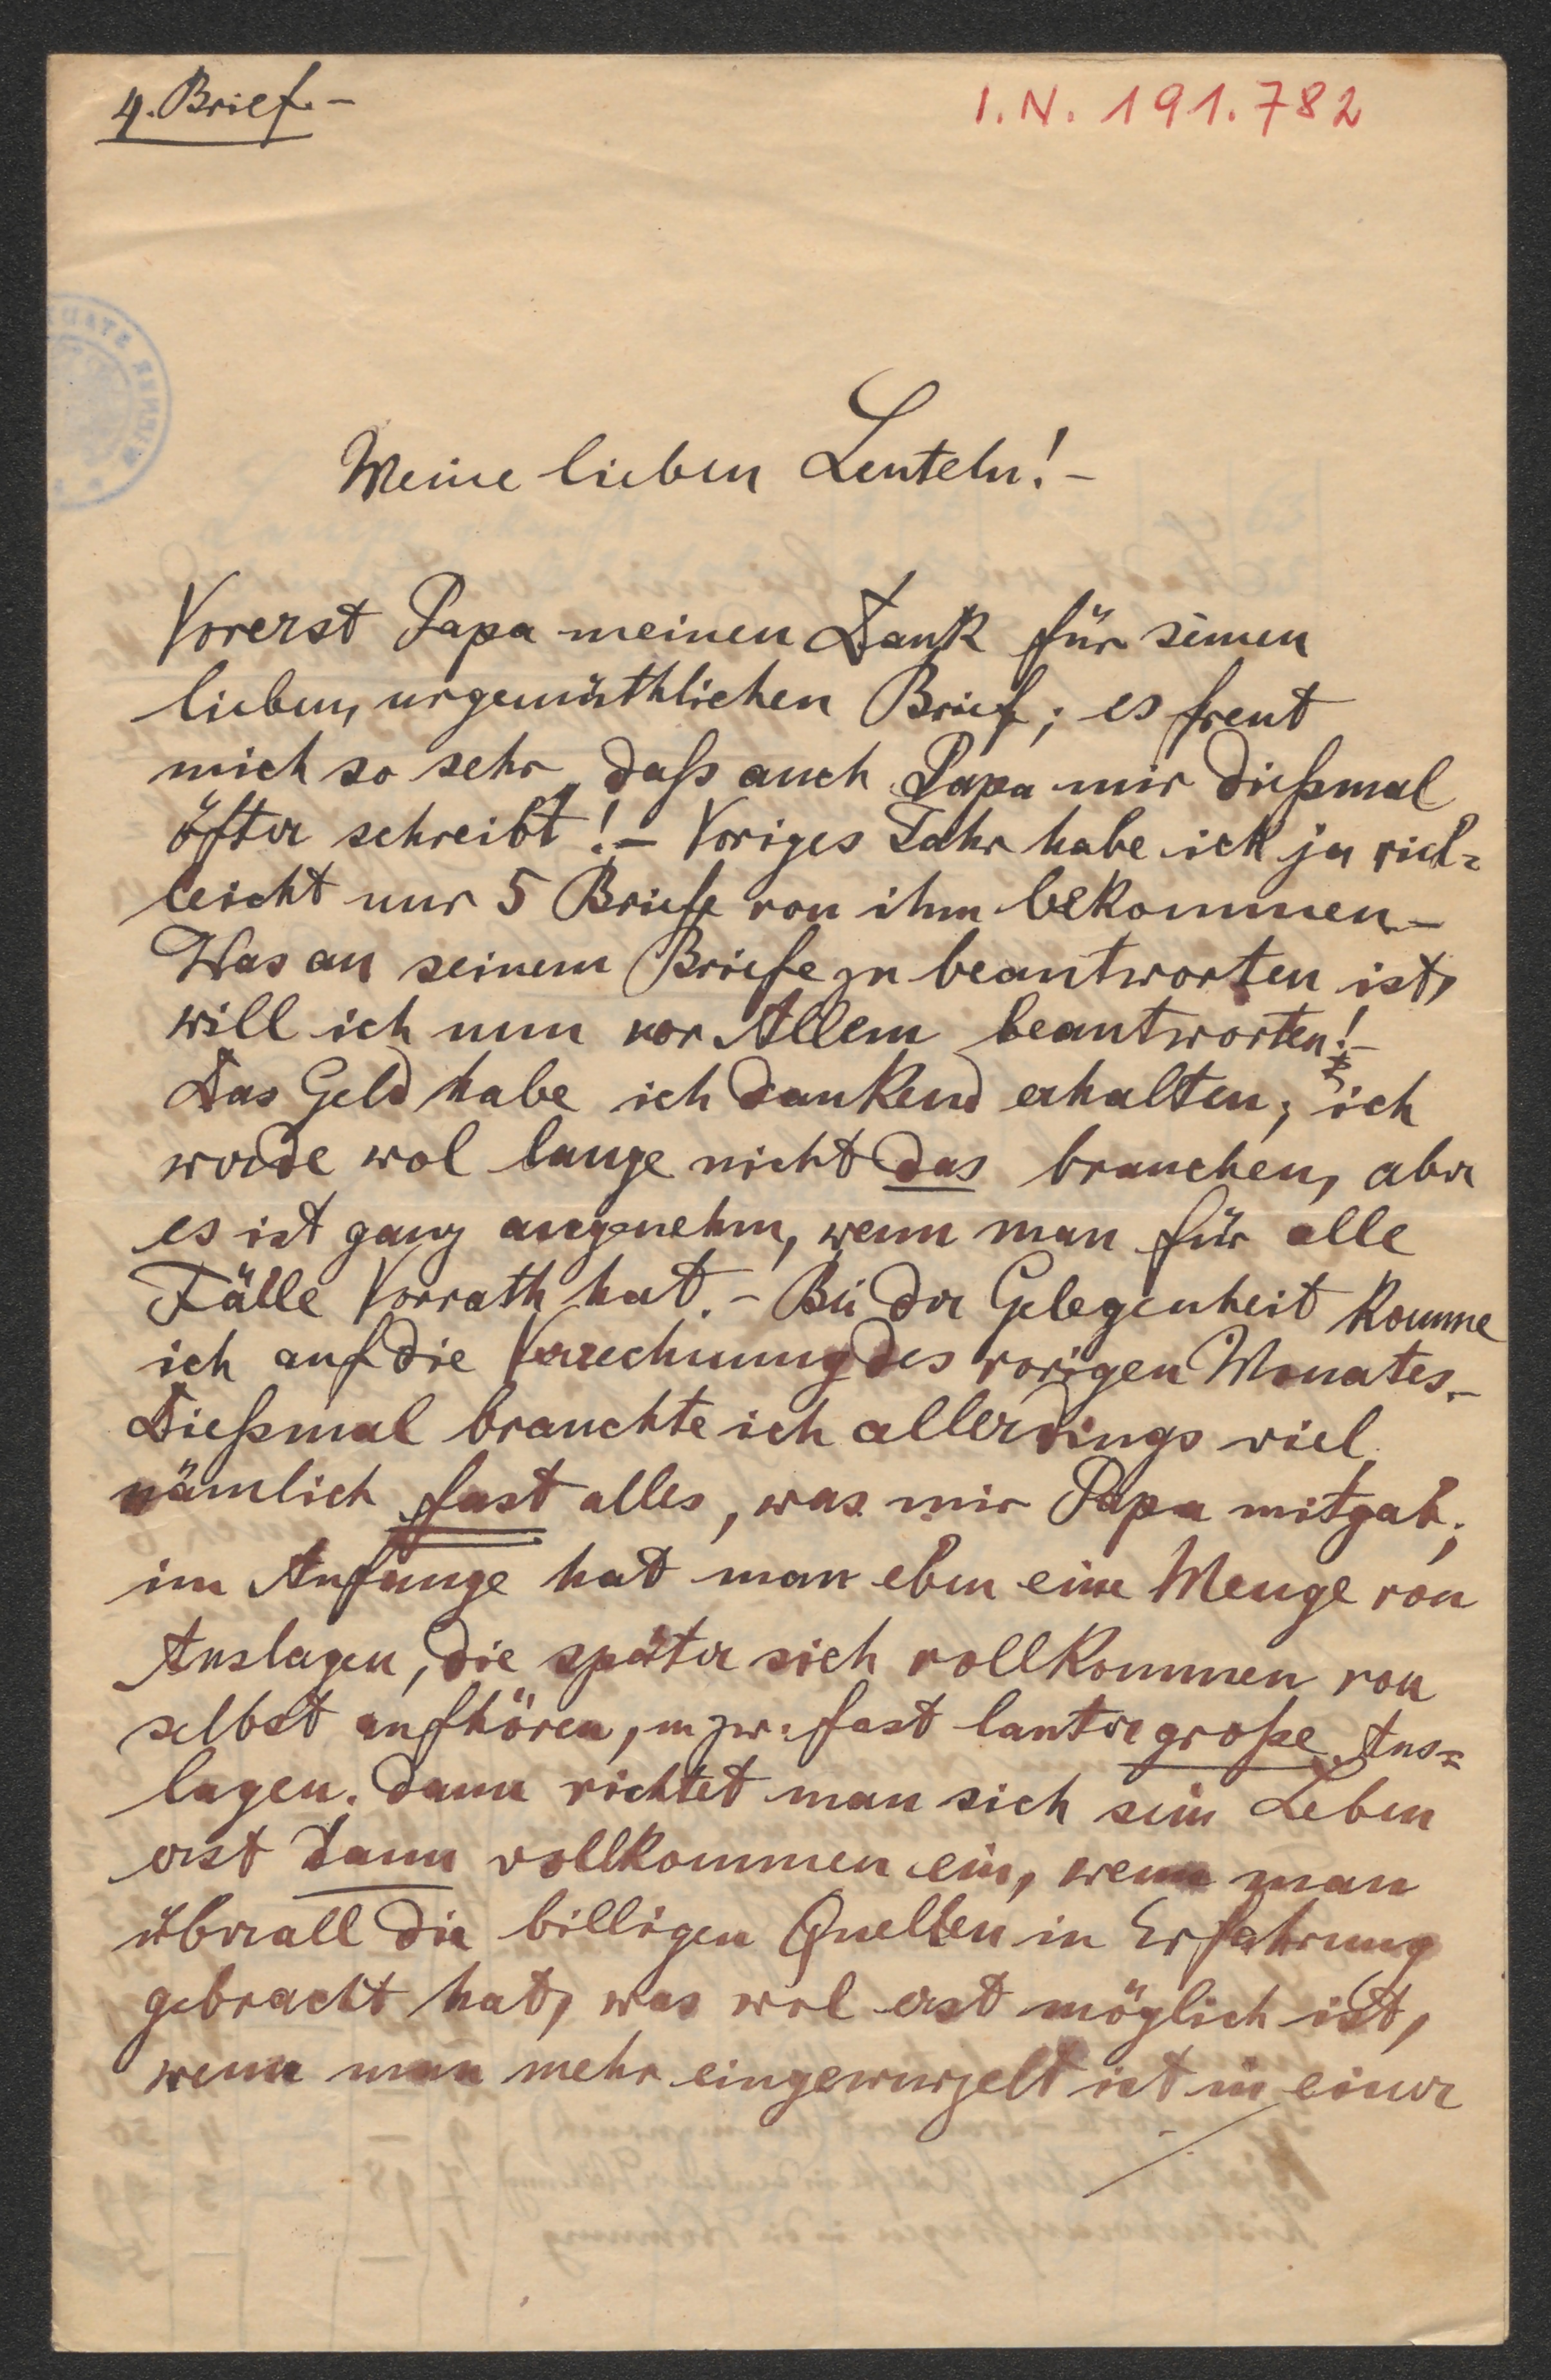 4. Brief.–
I.N. 191.782
Meine lieben Leuteln!–
Vorerst Papa meinen Dank für seinen
lieben, urgemüthlichen Brief; es freut
mich so sehr, daß auch Papa mir dießmal
öfter schreibt!– Voriges Jahr habe ich ja viel=
leicht nur 5 Briefe von ihm bekommen.–
Was an seinem Briefe zu beantworten ist,
will ich nun vor Allem beantworten!–
Das Geld habe ich dankend erhalten; ich
werde wol lange nicht das brauchen, aber
es ist ganz angenehm, wenn man für alle
Fälle Vorrath hat.– Bei der Gelegenheit komme
ich auf die Verrechnung des vorigen Monates.–
Dießmal brauchte ich allerdings viel,
nämlich fast alles, was mir Papa mitgab;
im Anfange hat man eben eine Menge von
Auslagen, die später sich vollkommen von
selbst aufhören, u. zw. fast lauter große Aus=
lagen. Dann richtet man sich sein Leben
erst dann vollkommen ein, wenn man
überall die billigen Quellen in Erfahrung
gebracht hat, was wol erst möglich ist,
wenn man mehr eingewurzelt ist in einer